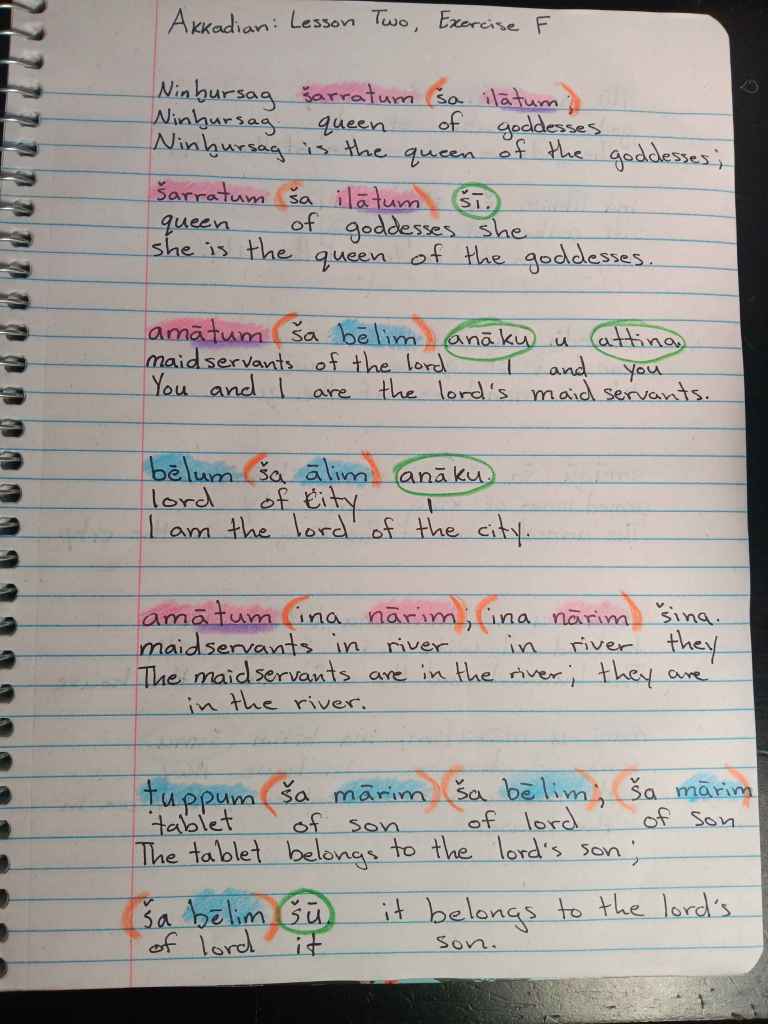 Akkadian: Lesson Two, Exercise F
Ninḫursag šarratum (ša ilātum);
Ninḫursag queen of goddesses
Ninḫursag is the queen of the goddesses;
šarratum (ša ilātum) šī.
queen of goddesses she
she is the queen of the goddesses.
amātum (ša bēlim) anāku u attina.
maidservants of the lord I and you
You and I are the lord's maidservants.
bēlum (ša ālim) anāku.
lord of city I
I am the lord of the city.
amātum (ina nārim); (ina nārim) šina.
maidservants in river in river they
The maidservants are in the river; they are
in the river.
tuppum (ša mārim) (ša bēlim); (ša mārim)
tablet of son of lord of son
The tablet belongs to the lord's son;
(ša bēlim) šū. it belongs to the lord's
of lord it son.